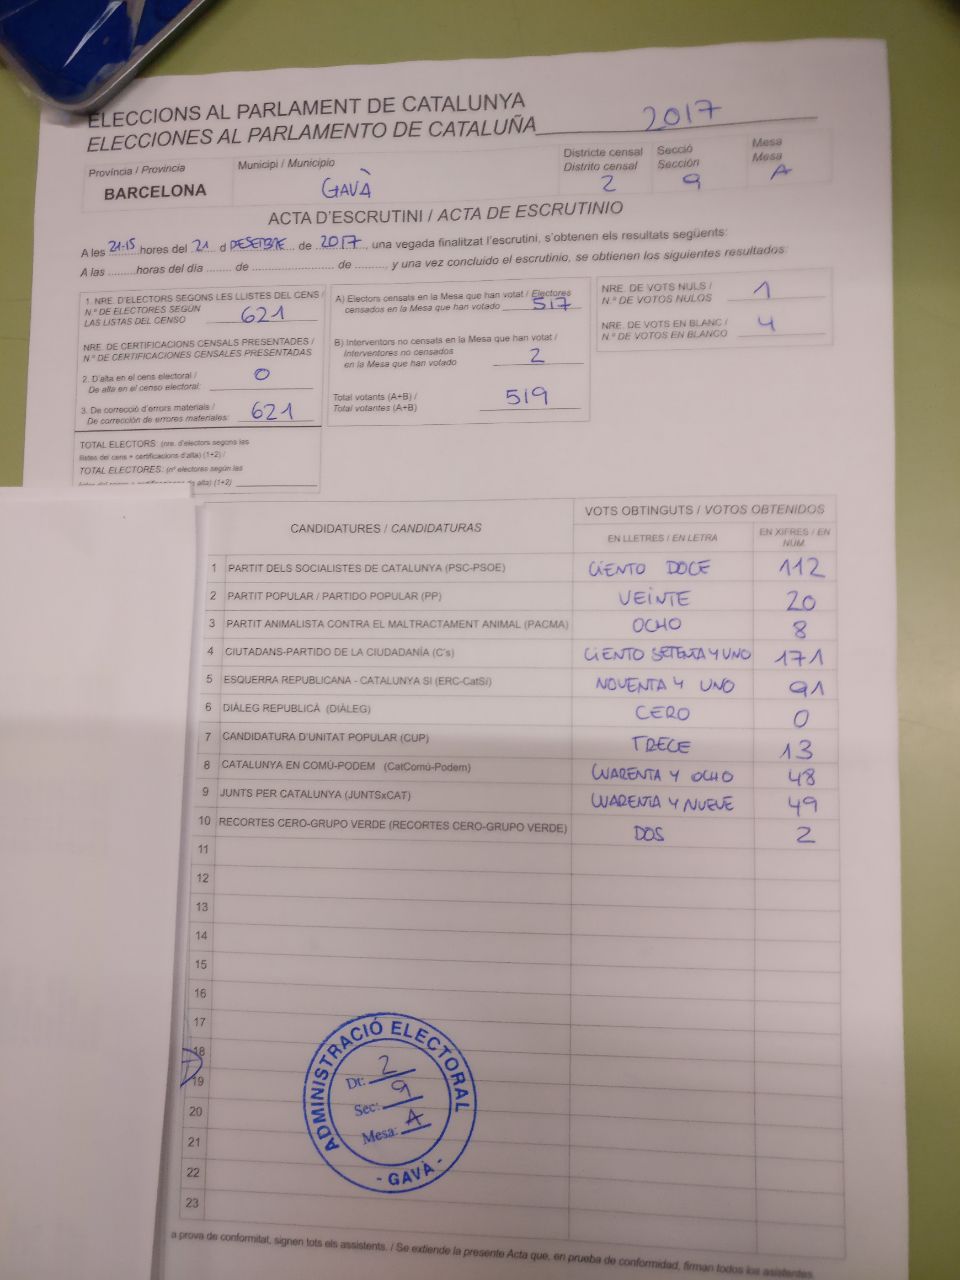 ELECCIONS AL PARLAMENT DE CATALUNYA
ELECCIONES AL PARLAMENTO DE CATALUÑA 2017
Província / Provincia
BARCELONA
Municipi / Municipio
GAVÀ
Districte censal
Distrito censal
2
Secció
Sección
9
Mesa
Mesa
A
ACTA D'ESCRUTINI / ACTA DE ESCRUTINIO
A les 21-15 hores del 21 d DESEMBRE de 2017, una vegada finalitzat l'escrutini, s'obtenen els resultats següents:
A las .........horas del día ....... de ........................ de ........., y una vez concluido el escrutinio, se obtienen los siguientes resultados:
1. NRE. D'ELECTORS SEGONS LES LLISTES DEL CENS /
N.º DE ELECTORES SEGÚN
LAS LISTAS DEL CENSO 621
NRE. DE CERTIFICACIONS CENSALS PRESENTADES /
N.º DE CERTIFICACIONES CENSALES PRESENTADAS
2. D'alta en el cens electoral /
De alta en el censo electoral: 0
3. De correcció d'errors materials /
De corrección de errores materiales: 621
TOTAL ELECTORS: (nre. d'electors segons les
llistes del cens + certificacions d'alta) (1+2) /
TOTAL ELECTORES: (nº electores según las
alta) (1+2)
A) Electors censats en la Mesa que han votat / Electores
censados en la Mesa que han votado 517
B) Interventors no censats en la Mesa que han votat /
Interventores no censados
en la Mesa que han votado 2
Total votants (A+B) /
Total votantes (A+B) 519
NRE. DE VOTS NULS /
N.º DE VOTOS NULOS 1
NRE. DE VOTS EN BLANC /
N.º DE VOTOS EN BLANCO 4
CANDIDATURES / CANDIDATURAS
VOTS OBTINGUTS / VOTOS OBTENIDOS
EN LLETRES / EN LETRA
EN XIFRES / EN
NÚM.
1 PARTIT DELS SOCIALISTES DE CATALUNYA (PSC-PSOE) CIENTO DOCE 112
2 PARTIT POPULAR / PARTIDO POPULAR (PP) VEINTE 20
3 PARTIT ANIMALISTA CONTRA EL MALTRACTAMENT ANIMAL (PACMA) OCHO 8
4 CIUTADANS-PARTIDO DE LA CIUDADANÍA (C's) CIENTO SETENTA Y UNO 171
5 ESQUERRA REPUBLICANA - CATALUNYA SI (ERC-CatSí) NOVENTA Y UNO 91
6 DIÀLEG REPUBLICÀ (DIÀLEG) CERO 0
7 CANDIDATURA D'UNITAT POPULAR (CUP) TRECE 13
8 CATALUNYA EN COMÚ-PODEM (CatComú-Podem) CUARENTA Y OCHO 48
9 JUNTS PER CATALUNYA (JUNTSxCAT) CUARENTA Y NUEVE 49
10 RECORTES CERO-GRUPO VERDE (RECORTES CERO-GRUPO VERDE) DOS 2
11
12
13
14
15
16
17
18
19
20
21
22
23
ADMINISTRACIÓ ELECTORAL
Dt: 2
Sec: 9
Mesa: A
- GAVÀ -
a prova de conformitat, signen tots els assistents. / Se extiende la presente Acta que, en prueba de conformidad, firman todos los asistentes.